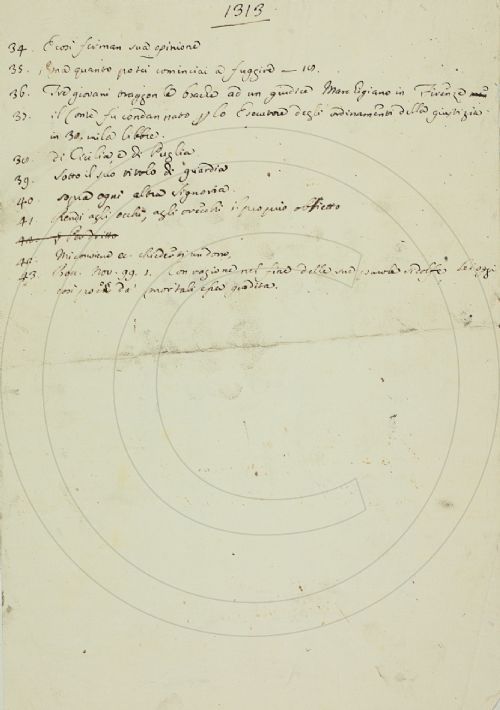 1313
34. E così ferman sua opinione
35. Ma quanto potei cominciai a fuggire — 19.
36. Tre giovani traggon le brache ad un giudice Marchigiano in Firenze
37. il Conte fu condannato p lo Esecutore degli ordinamenti della giustizia
in 30. mila libbre.
38. di Cicilia e di Puglia
39. Sotto il suo titolo di guardia
40. sopra ogni altra Signoria.
41. Rendi agli occhi, agli orecchi il proprio obbietto
42. Mi convene chieder ti un dono,
43. Bocc. Nov. 99. 1. Con ragione nel fine delle sue parole si dolse
così poco da' mortali esser gradita.